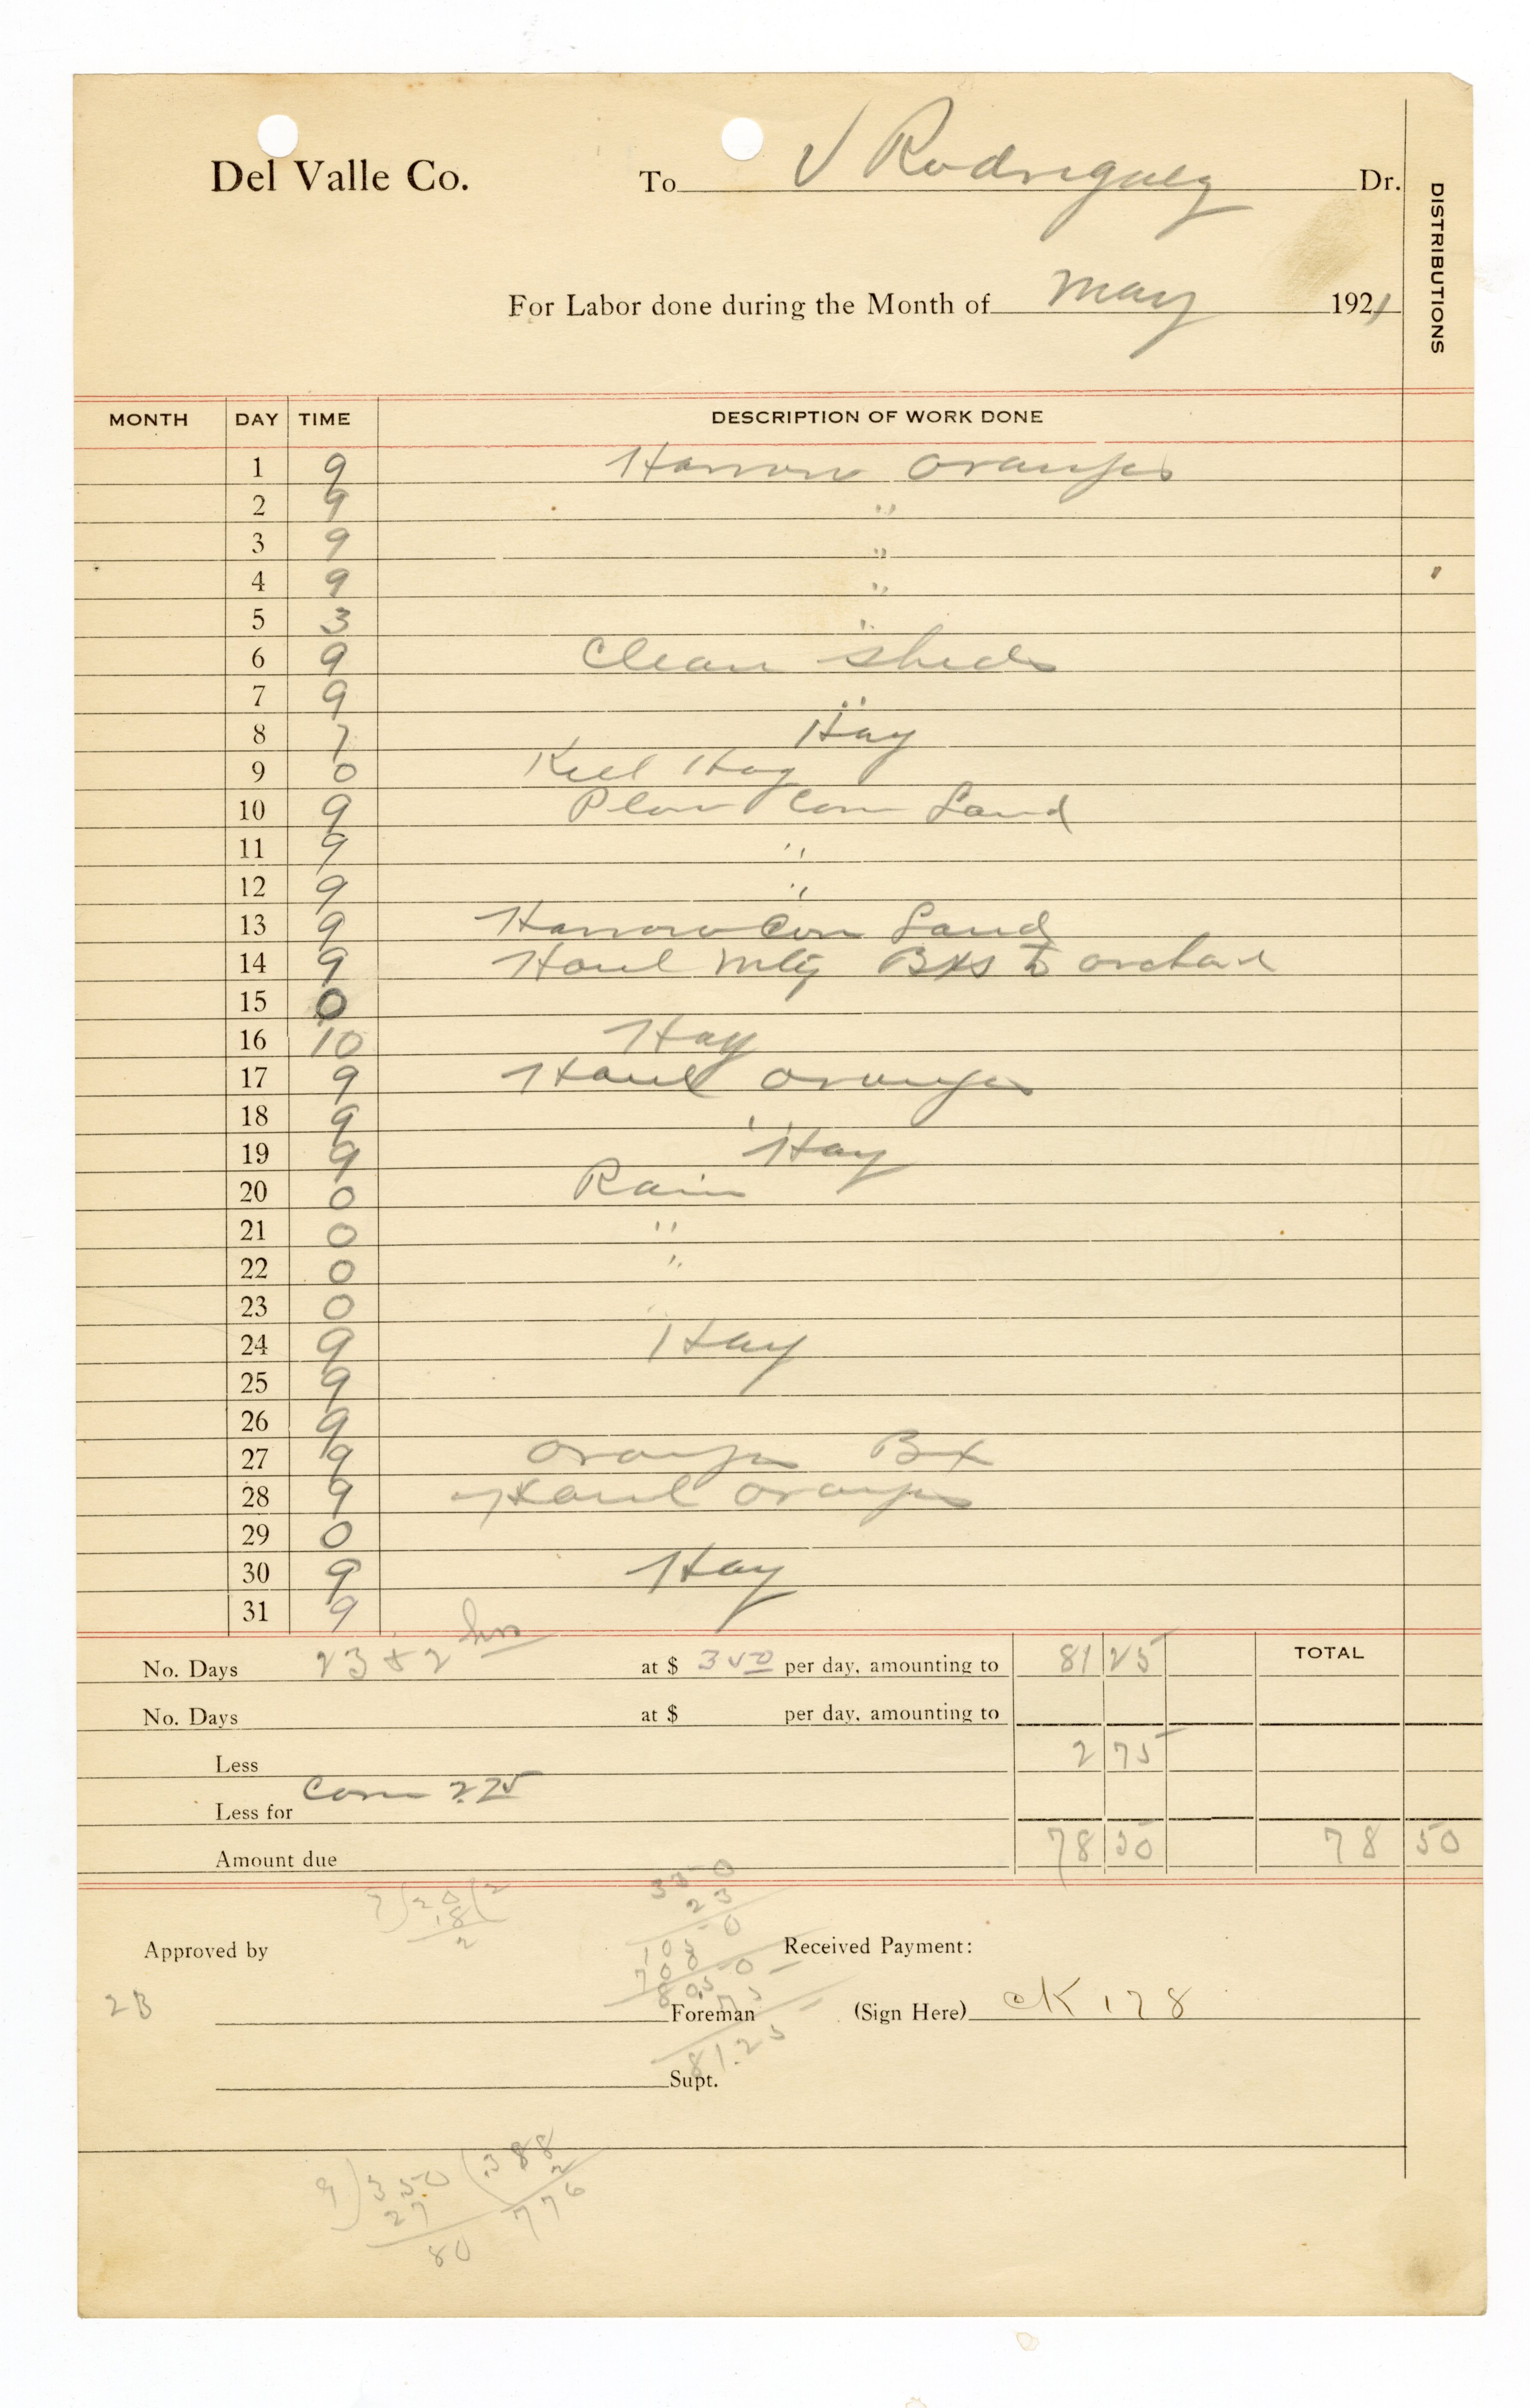 Del Valle Co. To V Rodriguez Dr.
DISTRIBUTIONS
For Labor done during the Month of May 1921
MONTH DAY TIME DESCRIPTION OF WORK DONE
1 9 Harrow oranges
2 9 "
3 9 "
4 9 "
5 3 "
6 9 Clean sheds
7 9 "
8 7 Hay
9 0 Hay
10 9 Plow Corn Land
11 9 "
12 9 "
13 9 Harrow Corn Land
14 9 Haul Bxs to orchard
15 0
16 10 Hay
17 9 Haul oranges
18 9 "
19 9 Hay
20 0 Rain
21 0 "
22 0 "
23 0
24 9 Hay
25 9
26 9
27 9 Orange Bx
28 9 Haul oranges
29 0
30 9 Hay
31 9
No. Days 23 & 2 hrs at $ 3 50 per day, amounting to 81 25 TOTAL
No. Days at $ per day, amounting to
Less 2 75
Corn 2.75
Less for
Amount due 78 50 78 50
350
23
1050
700
8050
75
81.25
Approved by Received Payment:
2B Foreman (Sign Here) cK 178
Supt.
9)350(388
27 2
80 776